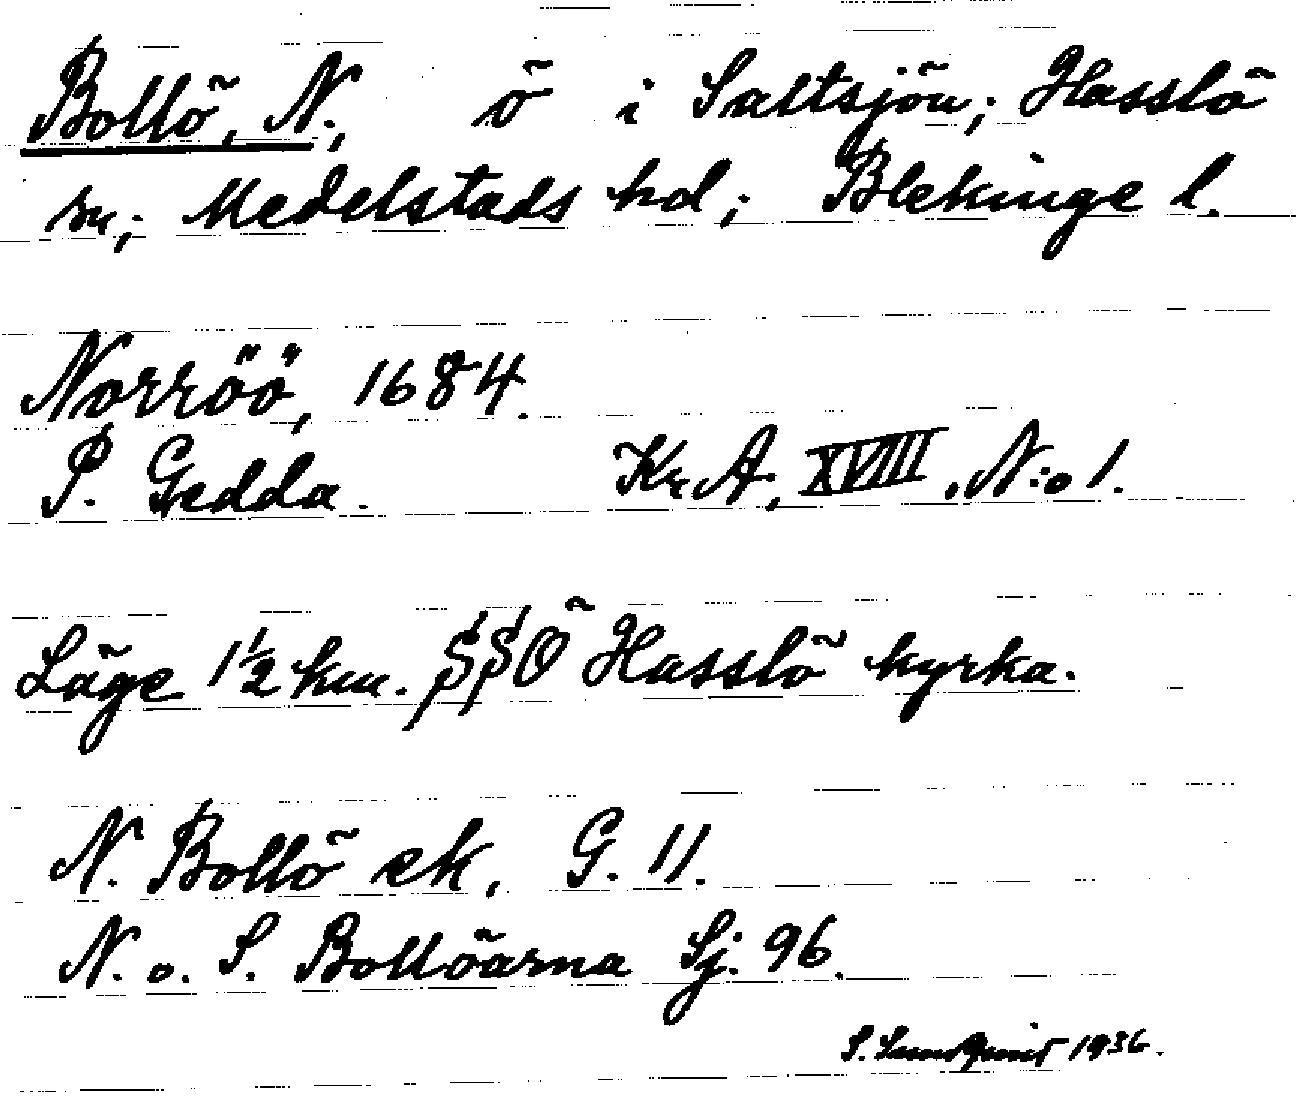 Bollö, N., ö i Saltsjön; Hasslö
sn; Medelstads hd; Blekinge l.
Norröö, 1684.
P. Gedda. KrA, XVIII, N:o 1.
Läge 1½ km. SSÖ Hasslö kyrka.
N. Bollö ek, G. 11.
N. o. S. Bollöarna Sj. 96.
S. Sundqvist 1936.